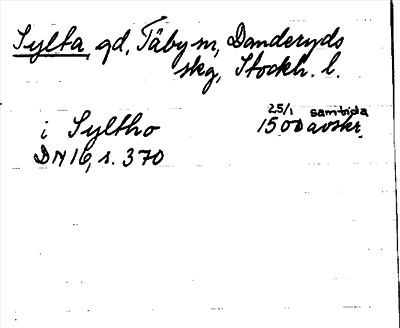 Sylta, gd, Täby sn, Danderyds
skg, Stockh. l.
i Syltho
25/1 samtida
1500 avskr.
DN 16, s. 370